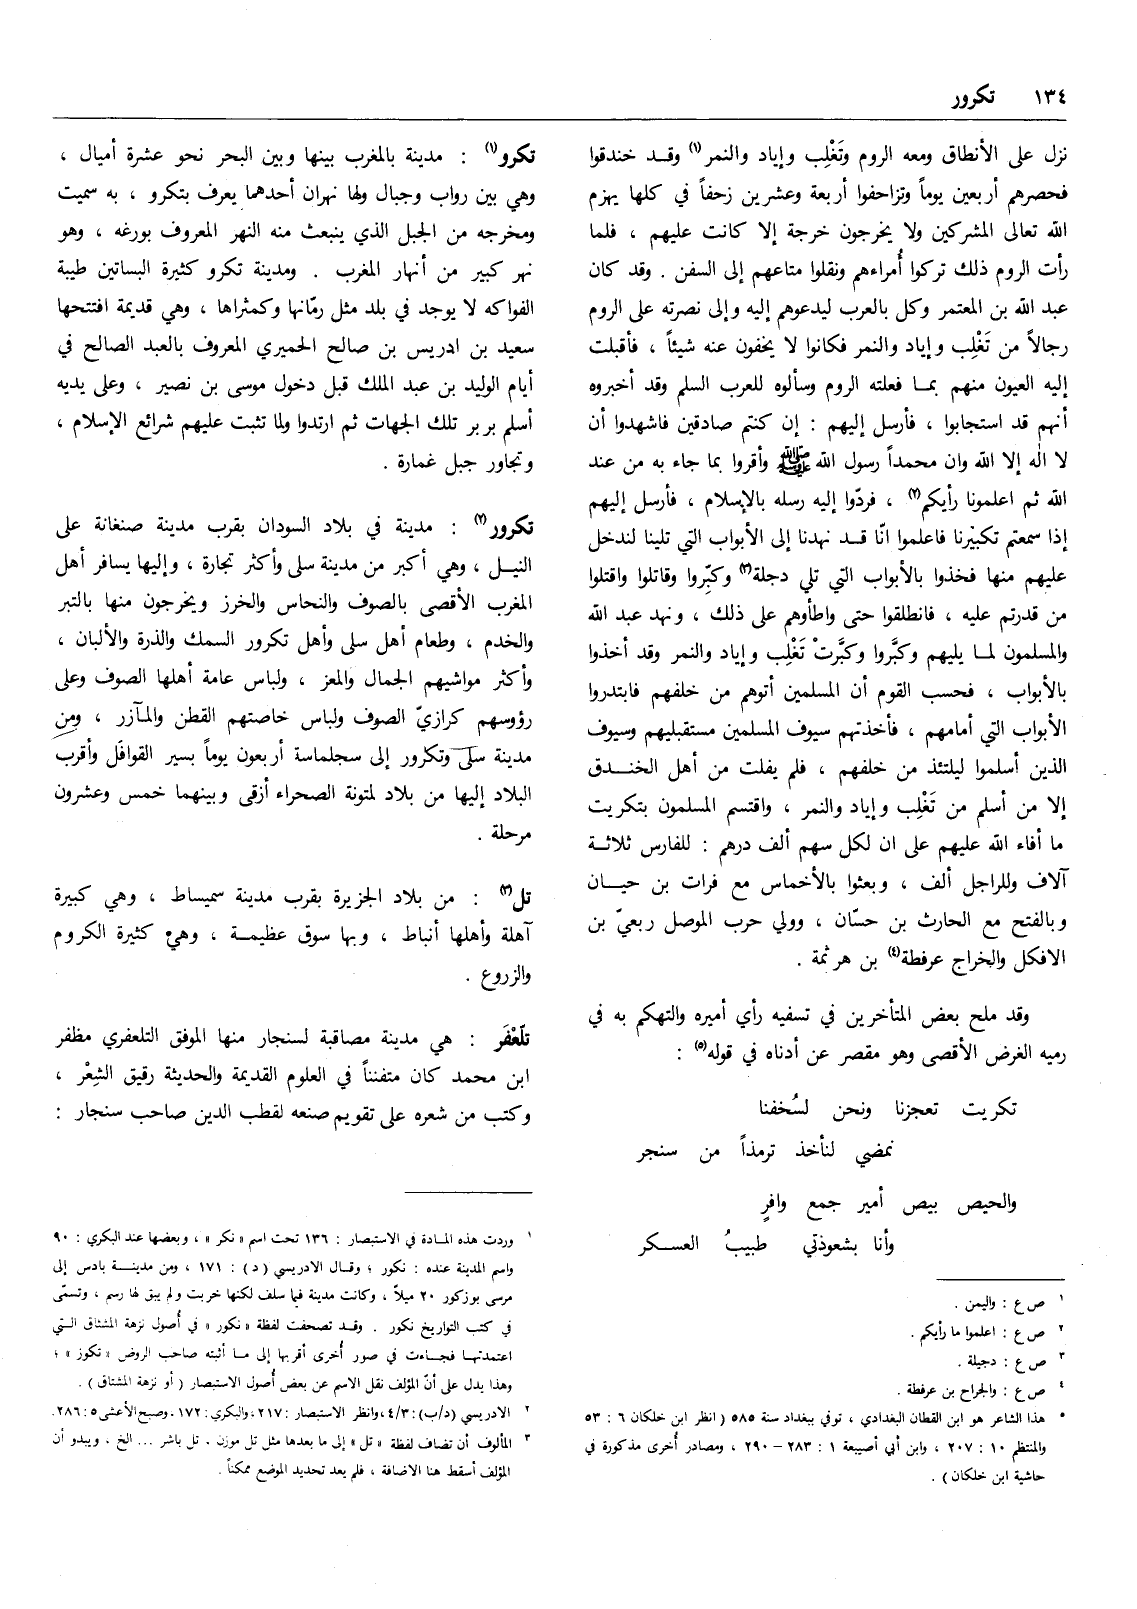 ١٣٤ تكرور
نزل على الأنطاق ومعه الروم وتَغْلِب وإياد والنمر(١) وقد خندقوا
فحصرهم أربعين يوماً وتزاحفوا أربعة وعشرين زحفاً في كلها يهزم
الله تعالى المشركين ولا يخرجون خرجة إلا كانت عليهم ، فلما
رأت الروم ذلك تركوا أُمراءهم ونقلوا متاعهم إلى السفن . وقد كان
عبد الله بن المعتمر وكل بالعرب ليدعوهم إليه وإلى نصرته على الروم
رجالاً من تَغْلِب وإياد والنمر فكانوا لا يخفون عنه شيئاً ، فأقبلت
إليه العيون منهم بما فعلته الروم وسألوه للعرب السلم وقد أخبروه
أنهم قد استجابوا ، فأرسل إليهم : إن كنتم صادقين فاشهدوا أن
لا اله إلا الله وان محمداً رسول الله ﷺ وأقروا بما جاء به من عند
الله ثم اعلمونا رأيكم(٢) ، فردّوا إليه رسله بالإسلام ، فأرسل إليهم
إذا سمعتم تكبيْرنا فاعلموا انّا قد نهدنا إلى الأبواب التي تلينا لندخل
عليهم منها فخذوا بالأبواب التي تلي دجلة(٣) وكبِّروا وقاتلوا واقتلوا
من قدرتم عليه ، فانطلقوا حتى واطأوهم على ذلك ، ونهد عبد الله
والمسلمون لما يليهم وكبَّروا وكبَّرتْ تَغْلِب وإياد والنمر وقد أخذوا
بالأبواب ، فحسب القوم أن المسلمين أتوهم من خلفهم فابتدروا
الأبواب التي أمامهم ، فأخذتهم سيوف المسلمين مستقبليهم وسيوف
الذين أسلموا ليلتئذ من خلفهم ، فلم يفلت من أهل الخندق
إلا من أسلم من تَغْلِب وإياد والنمر ، واقتسم المسلمون بتكريت
ما أفاء الله عليهم على ان لكل سهم ألف درهم : للفارس ثلاثة
آلاف وللراجل ألف ، وبعثوا بالأخماس مع فرات بن حيان
وبالفتح مع الحارث بن حسّان ، وولي حرب الموصل ربعيّ بن
الافكل والخراج عرفطة(٤) بن هرثمة .
وقد ملح بعض المتأخرين في تسفيه رأي أميره والتهكم به في
رميه الغرض الأقصى وهو مقصر عن أدناه في قوله(٥) :
تكريت تعجزنا ونحن لسُخفنا
نمضي لنأخذ ترمذاً من سنجر
والحيص بيص أمير جمع وافرٍ
وأنا بشعوذتي طبيبُ العسكر
١ ص ع : واليمن .
٢ ص ع : اعلموا ما رأيكم .
٣ ص ع : دجيلة .
٤ ص ع : والجراح بن عرفطة .
٥ هذا الشاعر هو ابن القطان البغدادي ، توفي ببغداد سنة ٥٨٥ ( انظر ابن خلكان ٦ : ٥٣
والمنتظم ١٠ : ٢٠٧ ، وابن أبي أصيبعة ١ : ٢٨٣ – ٢٩٠ ، ومصادر أُخرى مذكورة في
حاشية ابن خلكان ) .
تكرو(١) : مدينة بالمغرب بينها وبين البحر نحو عشرة أميال ،
وهي بين رواب وجبال ولها نهران أحدهما يعرف بتكرو ، به سميت
ومخرجه من الجبل الذي ينبعث منه النهر المعروف بورغه ، وهو
نهر كبير من أنهار المغرب . ومدينة تكرو كثيرة البساتين طيبة
الفواكه لا يوجد في بلد مثل رمّانها وكمثراها ، وهي قديمة افتتحها
سعيد بن ادريس بن صالح الحميري المعروف بالعبد الصالح في
أيام الوليد بن عبد الملك قبل دخول موسى بن نصير ، وعلى يديه
أسلم بربر تلك الجهات ثم ارتدوا ولما تثبت عليهم شرائع الإسلام ،
وتجاور جبل غمارة .
تكرور(٢) : مدينة في بلاد السودان بقرب مدينة صنغانة على
النيل ، وهي أكبر من مدينة سلى وأكثر تجارة ، وإليها يسافر أهل
المغرب الأقصى بالصوف والنحاس والخرز ويخرجون منها بالتبر
والخدم ، وطعام أهل سلى وأهل تكرور السمك والذرة والألبان ،
وأكثر مواشيهم الجمال والمعز ، ولباس عامة أهلها الصوف وعلى
رؤوسهم كرازيّ الصوف ولباس خاصتهم القطن والمآزر ، ومن
مدينة سلى وتكرور إلى سجلماسة أربعون يوماً بسير القوافل وأقرب
البلاد إليها من بلاد لمتونة الصحراء أزقى وبينهما خمس وعشرون
مرحلة .
تل(٣) : من بلاد الجزيرة بقرب مدينة سميساط ، وهي كبيرة
آهلة وأهلها أنباط ، وبها سوق عظيمة ، وهي كثيرة الكروم
والزروع .
تلّعْفَر : هي مدينة مصاقبة لسنجار منها الموفق التلعفري مظفر
ابن محمد كان متفنناً في العلوم القديمة والحديثة رقيق الشِعْر ،
وكتب من شعره على تقويم صنعه لقطب الدين صاحب سنجار :
١ وردت هذه المادة في الاستبصار : ١٣٦ تحت اسم « نكر » ، وبعضها عند البكري : ٩٠
واسم المدينة عنده : نكور ؛ وقال الادريسي (د) : ١٧١ ، ومن مدينة بادس إلى
مرسى بوزكور ٢٠ ميلاً ، وكانت مدينة فيما سلف لكنها خربت ولم يبق لها رسم ، وتسمّى
في كتب التواريخ نكور . وقد تصحفت لفظة « نكور » في أُصول نزهة المشتاق التي
اعتمدتها فجاءت في صور أُخرى أقربها إلى ما أثبته صاحب الروض « تكوز » ؛
وهذا يدل على أنّ المؤلف نقل الاسم عن بعض أُصول الاستبصار ( أو نزهة المشتاق ) .
٢ الادريسي (د/ب) : ٤/٣ ، وانظر الاستبصار : ٢١٧ ، والبكري : ١٧٢ . وصبح الأعشى ٥ : ٢٨٦ .
٣ المألوف أن تضاف لفظة « تل » إلى ما بعدها مثل تل موزن . تل باشر ... الخ ، ويبدو أن
المؤلف أسقط هنا الاضافة ، فلم يعد تحديد الموضع ممكناً .